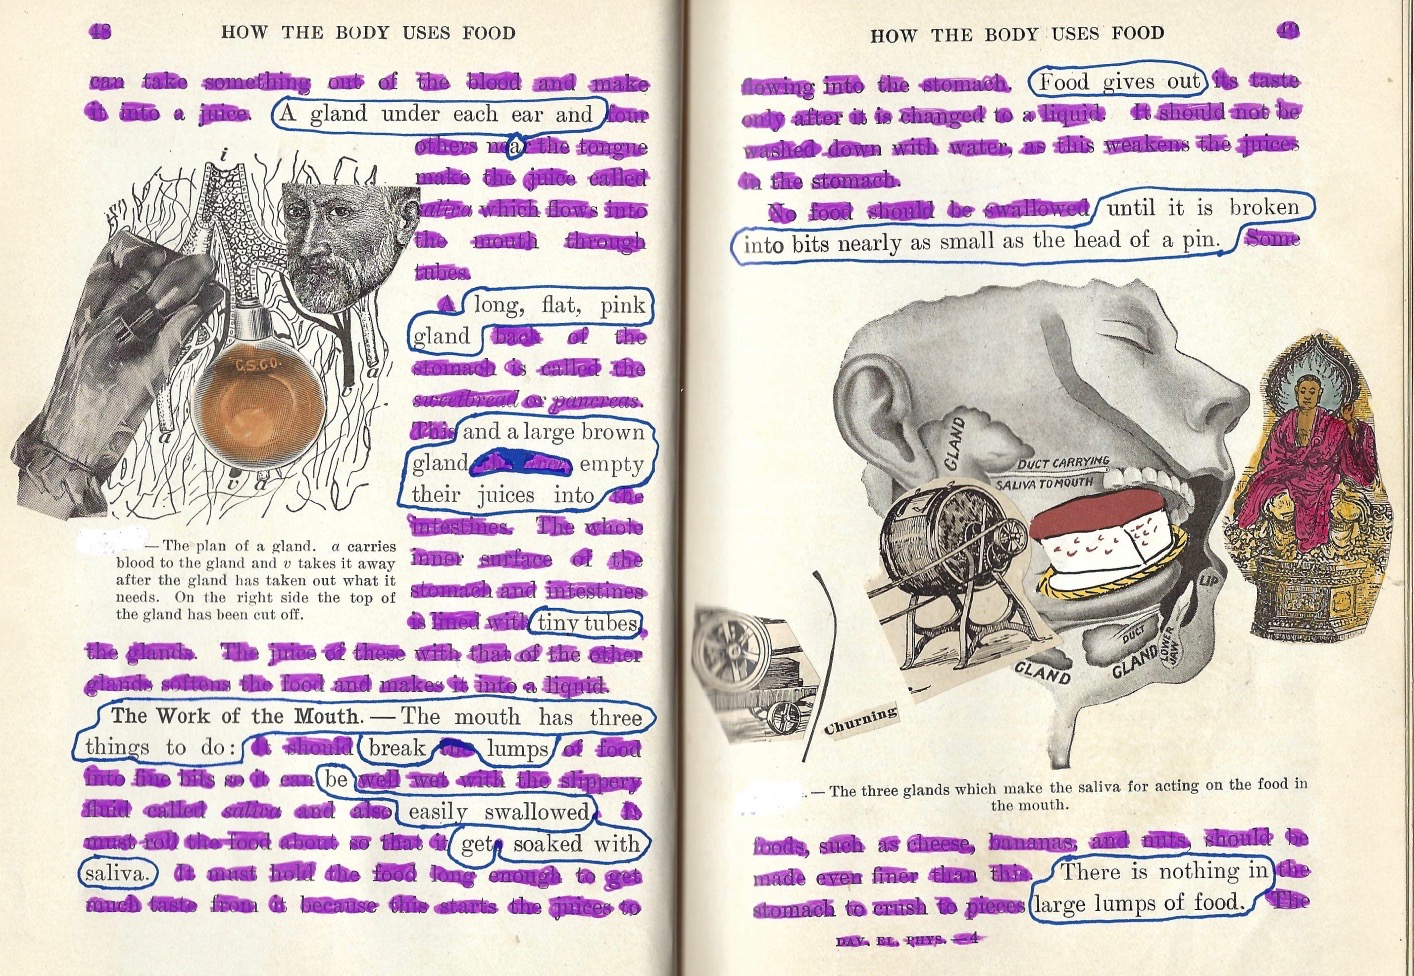 48
HOW THE BODY USES FOOD
can take something out of the blood and make
it into a juice. A gland under each ear and four
others near the tongue
make the juice called
saliva which flows into
the mouth through
tubes.
A long, flat, pink
gland back of the
stomach is called the
sweetbread or pancreas.
This and a large brown
gland empty
their juices into the
intestines. The whole
inner surface of the
stomach and intestines
is lined with tiny tubes,
i
C.S.CO.
a
a
v a
— The plan of a gland. a carries
blood to the gland and v takes it away
after the gland has taken out what it
needs. On the right side the top of
the gland has been cut off.
the glands. The juice of these with that of the other
glands softens the food and makes it into a liquid.
The Work of the Mouth. — The mouth has three
things to do: It should break the lumps of food
into fine bits so it can be well wet with the slippery
fluid called saliva and also easily swallowed. It
must roll the food about so that it gets soaked with
saliva. It must hold the food long enough to get
much taste from it because this starts the juices to
HOW THE BODY USES FOOD
49
flowing into the stomach. Food gives out its taste
only after it is changed to a liquid. It should not be
washed down with water, as this weakens the juices
in the stomach.
No food should be swallowed until it is broken
into bits nearly as small as the head of a pin. Some
GLAND
DUCT CARRYING
SALIVA TO MOUTH
LIP
DUCT
GLAND
LOWER JAW
GLAND
Churning
. — The three glands which make the saliva for acting on the food in
the mouth.
foods, such as cheese, bananas, and nuts, should be
made even finer than this. There is nothing in the
stomach to crush to pieces large lumps of food. The
DAV. EL. PHYS. — 4